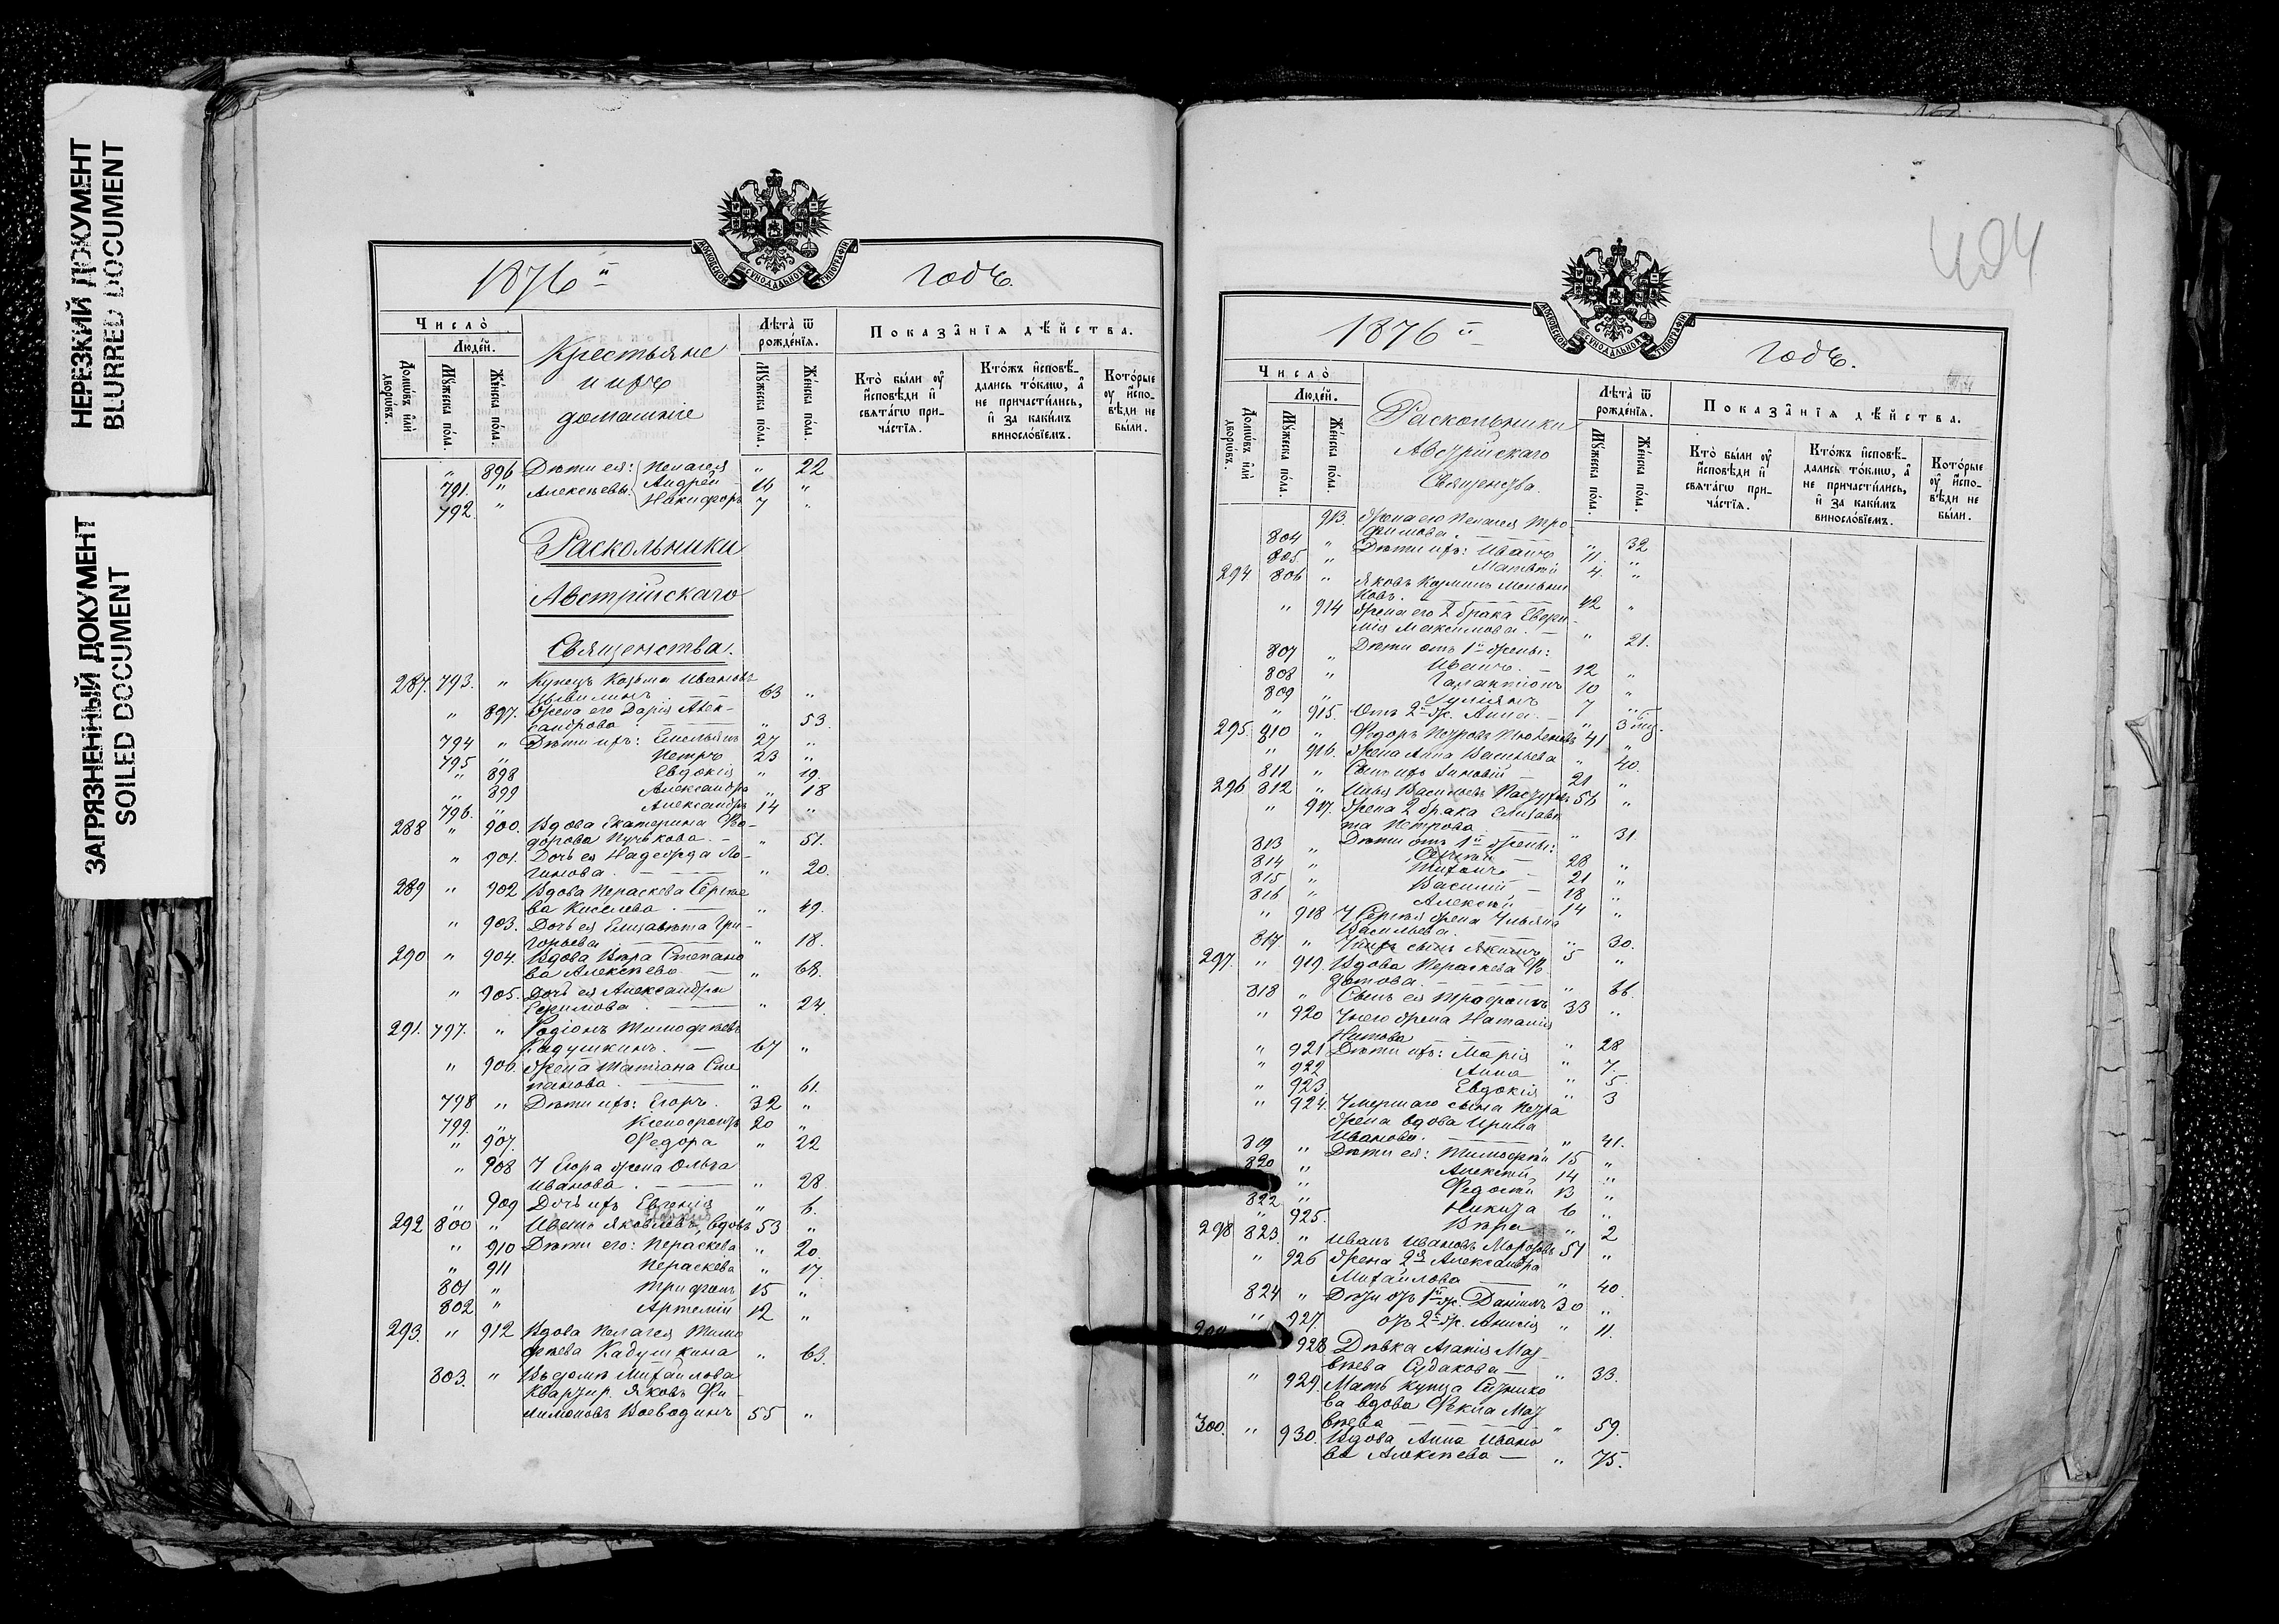 НЕРЕЗКИЙ ДОКУМЕНТ
BLURRED DOCUMENT
ЗАГРЯЗНЕННЫЙ ДОКУМЕНТ
SOILED DOCUMENT
МОСКОВСКОЙ СѴНОДАЛЬНОЙ ТИПОГРАФІИ
1876й годъ.
Число̀
Люде́й.
Домѡ́въ и҆лѝ дворѡ́въ.
Мꙋ́жеска по́ла.
Же́нска по́ла.
Крестьяне
и ихъ
домашніе
Лѣта̀ ѿ рожде́нїѧ.
Мꙋ́жеска по́ла.
Же́нска по́ла.
Показа̑нїѧ дѣ́йства.
Кто̀ бы́ли ᲂу҆ и҆сповѣ́ди и҆ свѧта́гѡ причáстїѧ.
Кто́жъ и҆сповѣ́дались то́кмѡ, а҆ не причасти́лись, и҆ за каки́мъ винослóвїемъ.
Кото́рые ᲂу҆ и҆сповѣ́ди не бы́ли.
„ 896 Дѣти ея: Пелагея „ 22
791. „ Алексѣевы: Андрей 16 „
792. „ Никифоръ 7 „
Раскольники
Австрійскаго
Священства.
287. 793. „ Купецъ Козьма Ивановъ
63 „
„ 897. Жена его Дарія Алек-
сандрова. „ 53.
794 „ Дѣти ихъ: Емельянъ 27 „
795 „ Петръ 23 „
„ 898 Евдокія „ 19.
„ 899 Александра „ 18
796. „ Александръ 14 „
288 „ 900. Вдова Екатерина Фо-
дорова Пучькова. „ 51.
„ 901. Дочь ея Надежда Ло-
гинова. „ 20.
289 „ 902 Вдова Параскева Сергѣе
ва Киселева. „ 49.
„ 903. Дочь ея Елизавета Гри-
горьева „ 18.
290 „ 904. Вдова Вѣра Степано
ва Алексѣева. „ 68.
„ 905. Дочь ея Александра
Ефимова. „ 24.
291. 797. „ Родіонъ Тимофѣевъ
Кадушкинъ. 67 „
„ 906. Жена Татіана Сте
панова. „ 61.
798 „ Дѣти ихъ: Егоръ. 32 „
799. „ Ксенофонтъ 20 „
„ 907. Федора „ 22
„ 908 У Егора жена Ольга
Иванова. „ 28
„ 909 Дочь ихъ Евгенія „ 6.
292 800 „ Иванъ Яковлевъ, вдовъ 53 „
„ 910 Дѣти его: Параскева „ 20.
„ 911 Параскева „ 17.
801 „ Трифонъ 15 „
802 „ Артемій 12 „
293. „ 912 Вдова Пелагея Тимо
фѣева Кадушкина „ 63.
803. „ Въ домѣ Михайлова
квартир. Яковъ Фи-
лимоновъ Воеводинъ 55 „
404
МОСКОВСКОЙ СѴНОДАЛЬНОЙ ТИПОГРАФІИ
1876й годъ.
Число̀
Люде́й.
Домѡ́въ и҆лѝ дворѡ́въ.
Мꙋ́жеска по́ла.
Же́нска по́ла.
Раскольники
Австрійскаго
Священства.
Лѣта̀ ѿ рожде́нїѧ.
Мꙋ́жеска по́ла.
Же́нска по́ла.
Показа̑нїѧ дѣ́йства.
Кто̀ бы́ли ᲂу҆ и҆сповѣ́ди и҆ свѧта́гѡ причáстїѧ.
Кто́жъ и҆сповѣ́дались то́кмѡ, а҆ не причасти́лись, и҆ за каки́мъ винослóвїемъ.
Кото́рые ᲂу҆ и҆сповѣ́ди не бы́ли.
913. Жена его Пелагея Тро-
фимова. „ 32
804 „ Дѣти ихъ: Иванъ 11. „
805. „ Матвѣй 4. „
294. 806 „ Яковъ Карпинъ Мельни
ковъ. 42 „
„ 914 Жена его 2 брака Евфи-
мія Максимова. „ 21.
807 „ Дѣти отъ 1й жены:
Иванъ. 12 „
808 „ Галактіонъ 10 „
809 „ Іуліанъ 7 „
„ 915. Отъ 2й ж. Анна. „ 3
295. 810 „ Федоръ Петровъ 41 „
„ 916. Жена Анна Васильева „ 40.
811 „ Сынъ ихъ Зиновій 21 „
296 812 „ Илья Васильевъ Пастуховъ 56 „
„ 917. Жена 2 брака Елизаве
та Петрова „ 31.
813 „ Дѣти отъ 1й жены:
Сергѣй 28 „
814 „ Титонъ 21 „
815 „ Василій 18 „
816 „ Алексѣй 14 „
„ 918 У Сергѣя жена Ульяна
Васильева. „ 30.
817. „ У нихъ сынъ Якимъ 5 „
297. „ 919. Вдова Параскева Ѳ
дотова. „ 66.
818 „ Сынъ ея Трофимъ 33 „
„ 920 У него жена Наталія
Титова „ 28
„ 921 Дѣти ихъ: Марія „ 7.
„ 922 Анна „ 5.
„ 923 Евдокія „ 3
„ 924. Умершаго сына Петра
жена вдова Ирина
Иванова. „ 41.
819 „ Дѣти ея: Тимофѣй 15 „
820 „ Алексѣй, 14 „
„ Федосѣй 13 „
822 „ Никита 6 „
„ 925. Вѣра „ 2
298 823 „ Иванъ Ивановъ Морозовъ 51 „
„ 926 Жена 2я Александра
Михайлова „ 40.
824 „ Дѣти отъ 1й ж. Даніилъ 30 „
„ 927. отъ 2й ж. Анисія „ 11.
928 Дѣвка Агапія Мат-
вѣева Судакова „ 33.
„ 929. Мать купца Ситнико
ва вдова Фекла Мат
вѣева „ 59.
300. „ 930. Вдова Анна Ивано
ва Алексѣева „ 75.